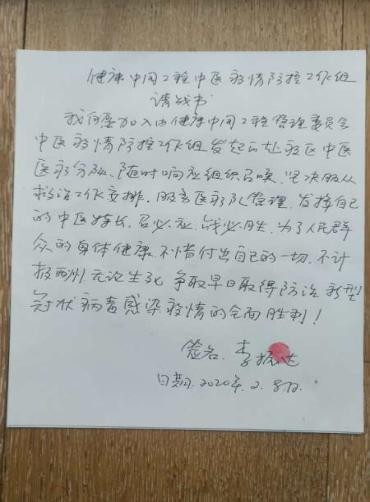 健康中国工程中医疫情防控工作组
请战书
我自愿加入由健康中国工程管理委员会
中医疫情防控工作组发起的赴疫区中医
医疗分队，随时响应组织召唤，坚决服从
救治工作安排，服务医疗队管理，发挥自
己的中医特长，召必应，战必胜，为了人民群
众的身体健康，不惜付出自己的一切，不计
报酬，无论生死，争取早日取得防治新型
冠状病毒感染疫情的全面胜利！
签名：李振
日期：2020年.2.8日.